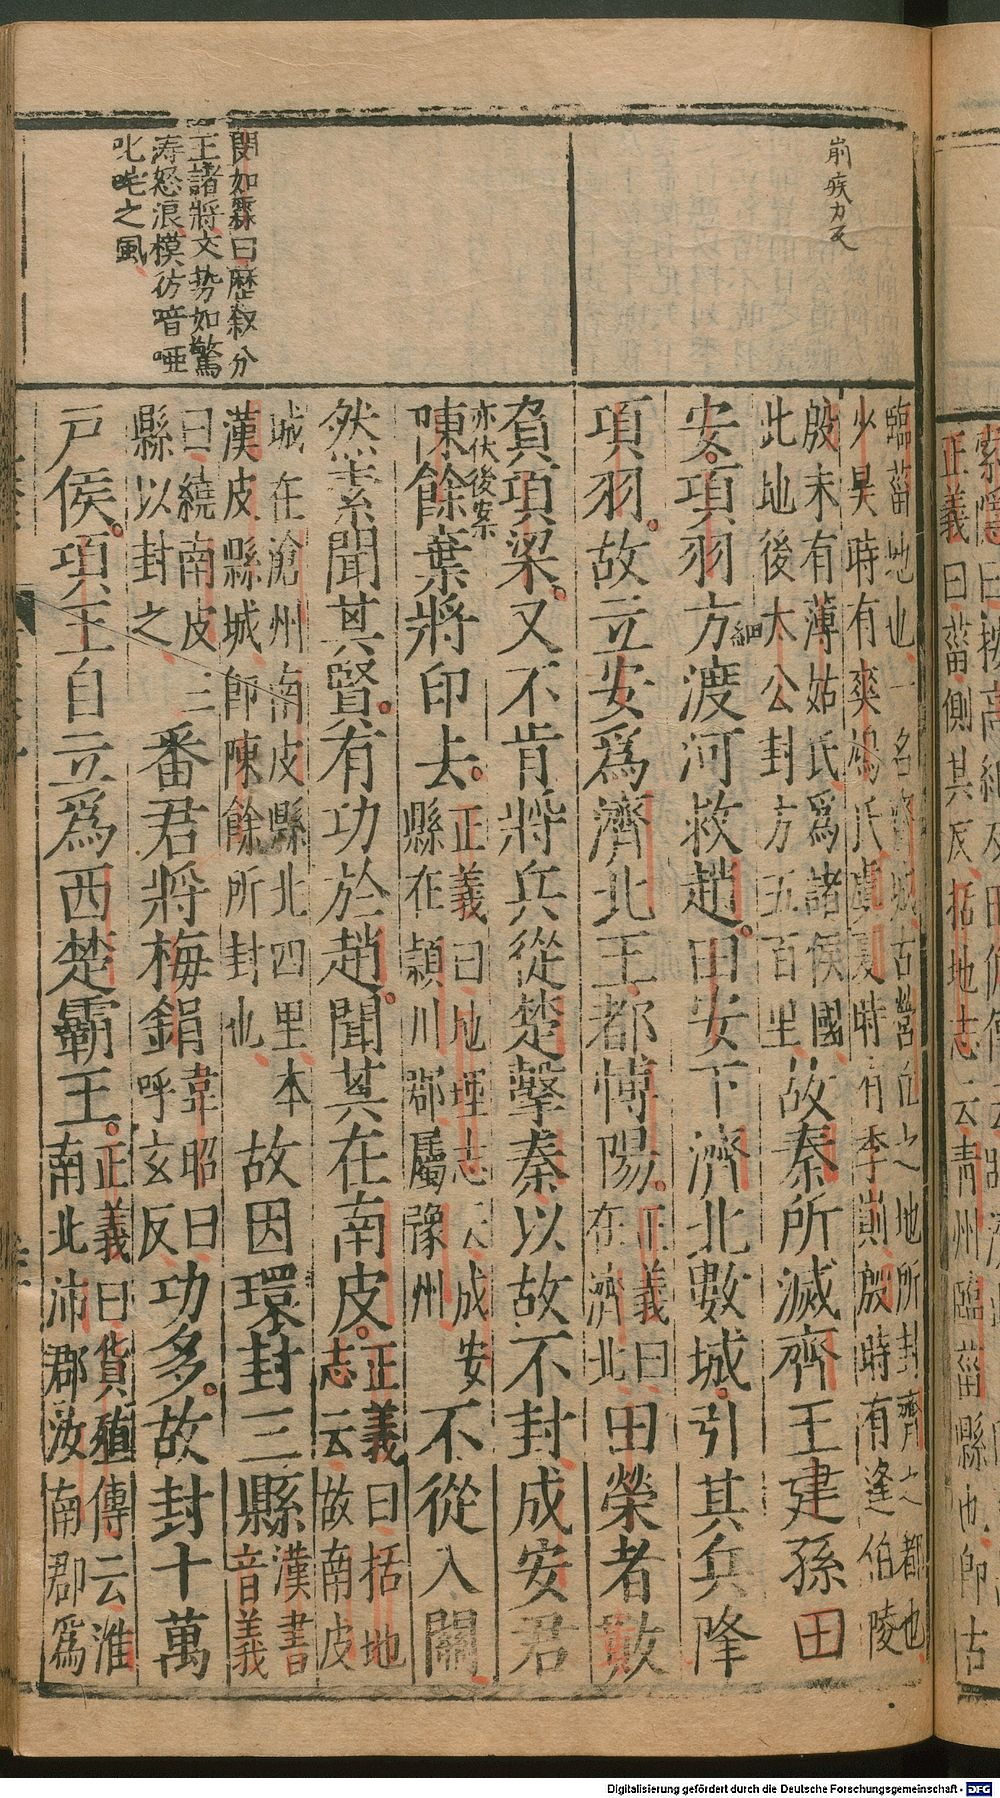 閔如霖曰歷敘分
王諸將文勢如驚
濤怒浪模彷喑啞
叱咤之風
臨菑地也一名齊城古營丘之地所封齊之都也
少昊時有爽鳩氏虞夏時有季崱殷時有逢伯陵
殷末有薄姑氏為諸侯國
此地後太公封方五百里
故秦所滅齊王建孫田
安項羽方渡河救趙田安下濟北數城引其兵降
細
項羽故立安爲濟北王都博陽
正義曰
在濟北
田榮者數
負項梁又不肯將兵從楚擊秦以故不封成安君
亦伏後案
陳餘棄將印去
正義曰地理志云成安
縣在潁川郡屬豫州
不從入關
然素聞其賢有功於趙聞其在南皮
正義曰括地
志云故南皮
城在滄州南皮縣北四里本
漢皮縣城即陳餘所封也
故因環封三縣
漢書
音義
曰繞南皮三
縣以封之
番君將梅鋗
韋昭曰
呼玄反
功多故封十萬
戸侯項王自立爲西楚霸王
正義曰貨殖傳云淮
南北沛郡汝南郡爲
索隱曰按高紀及田儋傳云
正義曰菑側其反括地志云靑州臨菑縣也即古
Digitalisierung gefördert durch die Deutsche Forschungsgemeinschaft - DFG